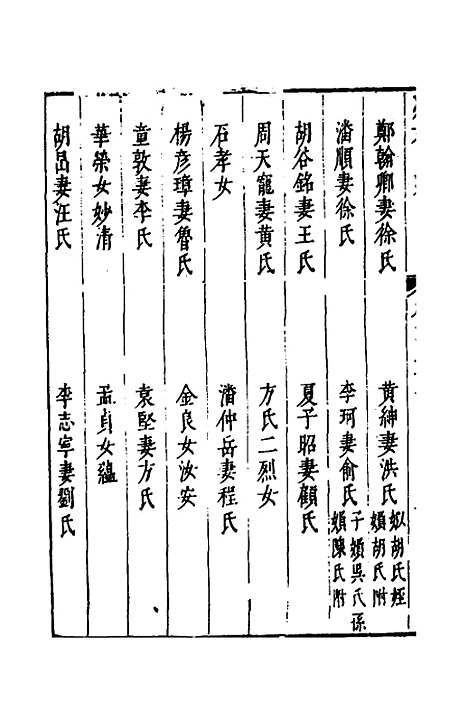 鄭翰卿妻徐氏　黃紳妻洪氏　姒胡氏姪婦胡氏附
潘順妻徐氏　李珂妻俞氏　子婦吳氏孫婦陳氏附
胡谷銘妻王氏　夏子昭妻顧氏
周天寵妻黃氏　方氏二烈女
石孝女　潘仲岳妻程氏
楊彦璋妻魯氏　金良女汝安
童敦妻李氏　袁堅妻方氏
華榮女妙清　孟貞女蘊
胡邑妻汪氏　李志寧妻劉氏